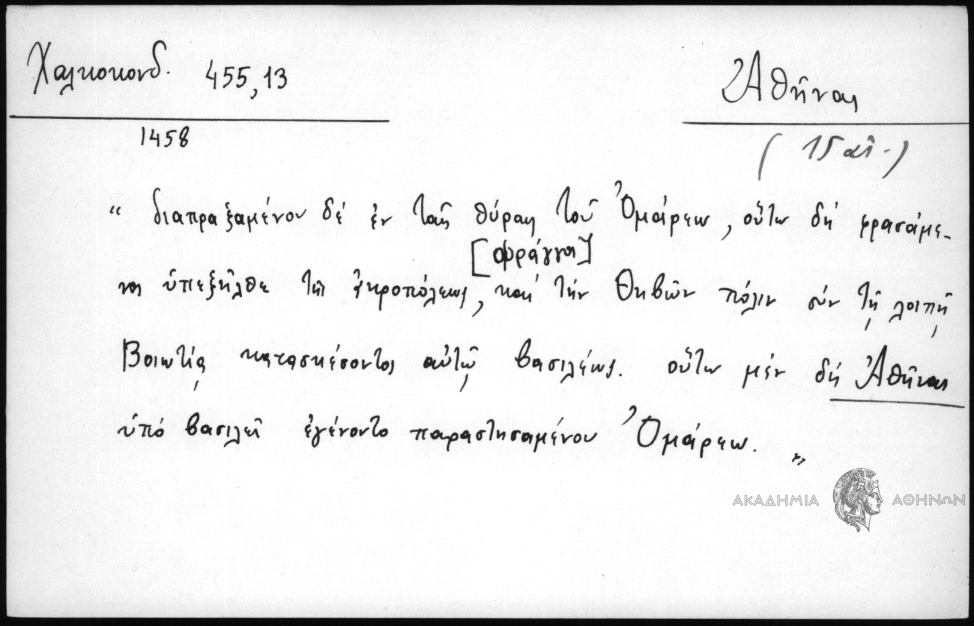 Χαλκοκονδ. 455,13
Ἀθῆναι
1458
(15 αἰ.)
“ διαπραξαμένου δέ ἐν ταῖς θύραις τοῦ Ὀμάρεω, οὕτω δή φρασάμε-
[φράγγοι]
νος ὑπεξῆλθε τῆς ἀκροπόλεως, καί τήν Θηβῶν πόλιν σύν τῇ λοιπῇ
Βοιωτίᾳ κατασχέσοντος αὐτῷ βασιλέως. οὕτω μέν δή Ἀθῆναι
ὑπό βασιλεῖ ἐγένοντο παραστησαμένου Ὀμάρεω. „
ΑΚΑΔΗΜΙΑ ΑΘΗΝΩΝ